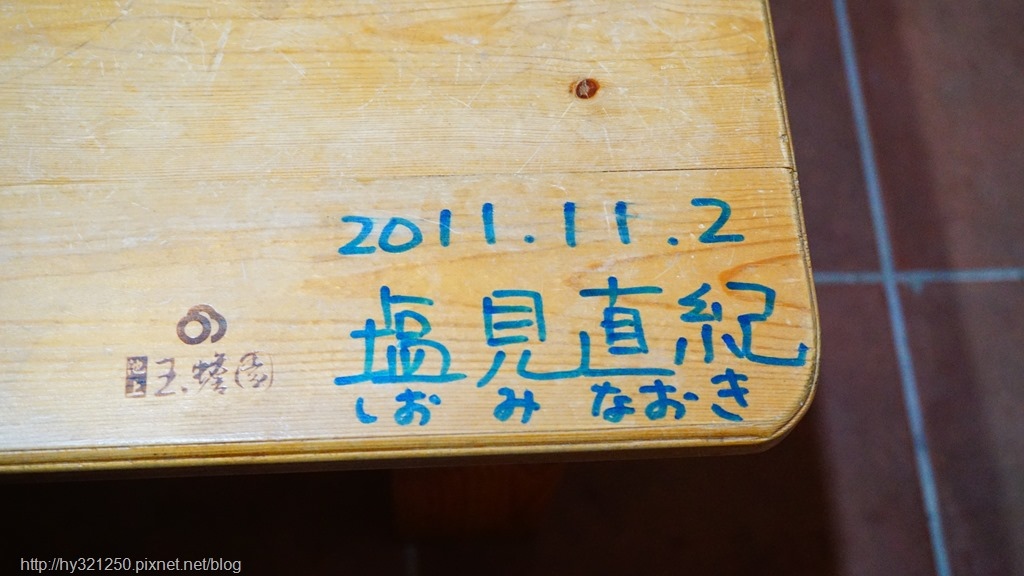 2011.11.2
塩見直紀
しお み なおき
玉蜂園
http://hy321250.pixnet.net/blog